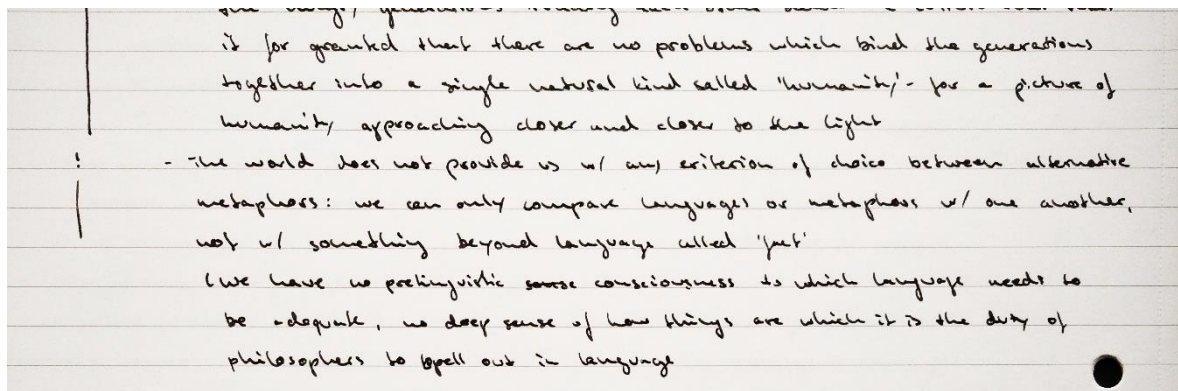 it for granted that there are no problems which bind the generations
together into a single natural kind called 'humanity' - for a picture of
humanity approaching closer and closer to the light
! - The world does not provide us w/ any criterion of choice between alternative
metaphors: we can only compare languages or metaphors w/ one another,
not w/ something beyond language called 'fact'
(we have no prelinguistic consciousness to which language needs to
be adequate, no deep sense of how things are which it is the duty of
philosophers to spell out in language